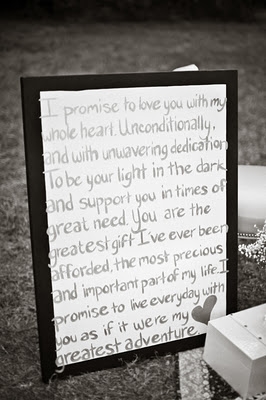 I promise to love you with my
whole heart. Unconditionally,
and with unwavering dedication
To be your light in the dark
and support you in times of
great need. You are the
greatest gift I've ever been
afforded, the most precious
and important part of my life. I
promise to live everyday with
you as if it were my
greatest adventure.